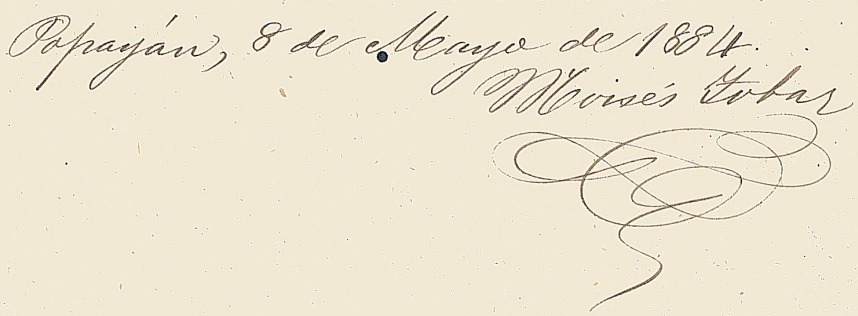 Popayán, 8 de Mayo de 1884.
Moisés Tobar